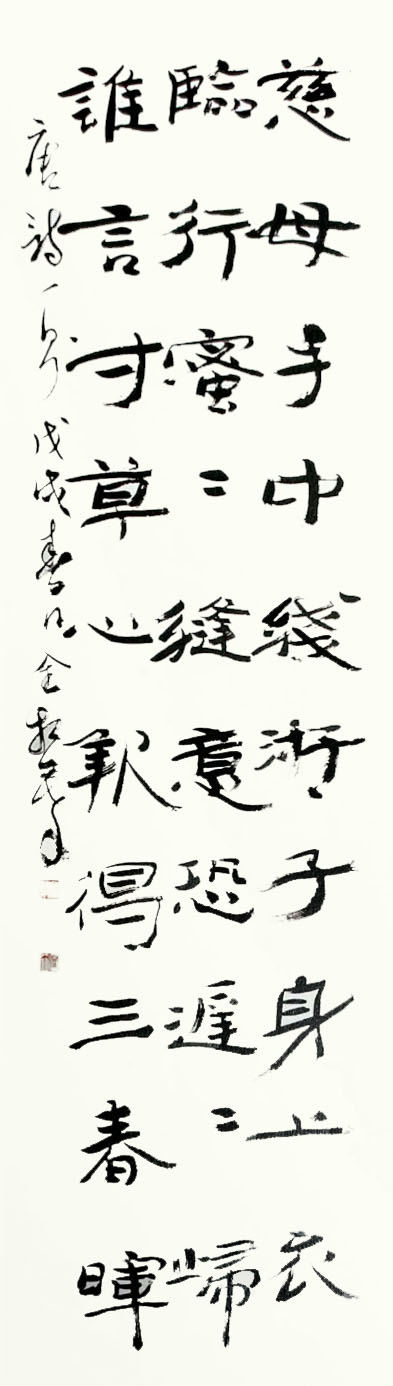 慈母手中綫游子身上衣
臨行蜜〻縫意恐遲〻歸
誰言寸草心報得三春暉
唐詩一首戊戌春月金